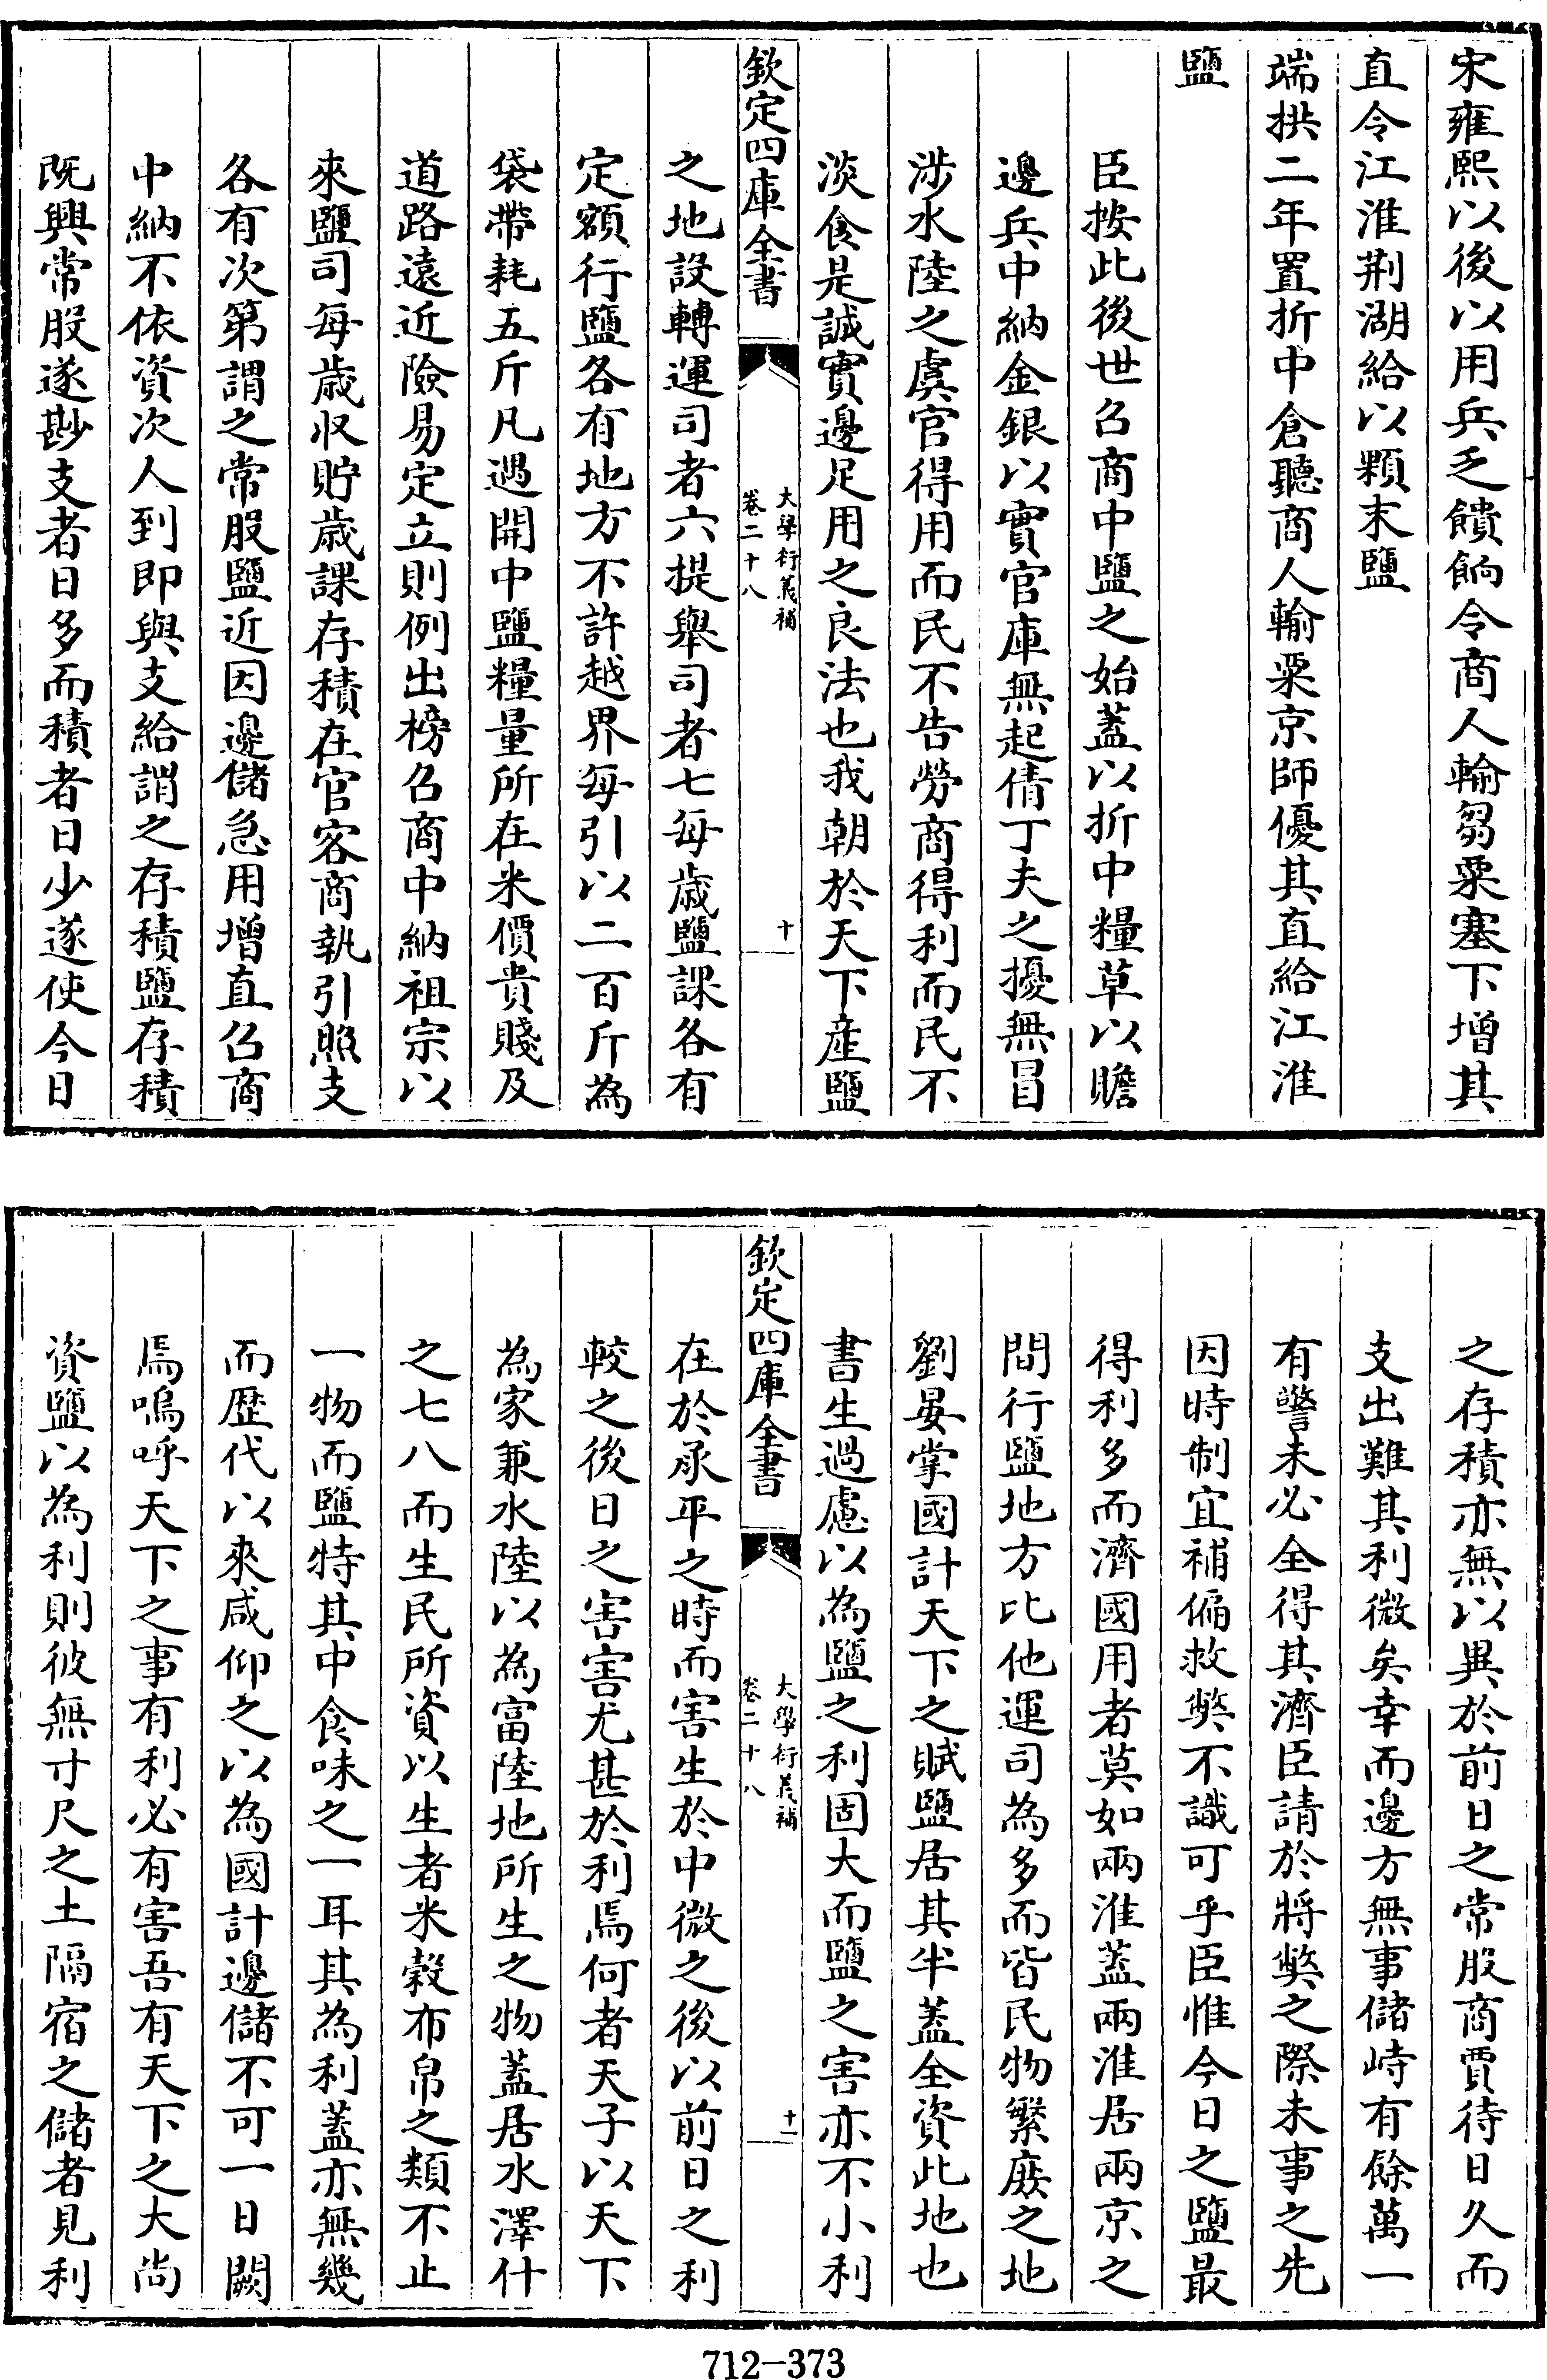 宋雍熙以後以用兵乏饋餉令商人輸芻粟塞下增其
直令江淮荆湖給以顆末鹽
端拱二年置折中倉聽商人輸粟京師優其直給江淮
鹽
臣按此後世召商中鹽之始蓋以折中糧草以贍
邊兵中納金銀以實官庫無起倩丁夫之擾無冒
涉水陸之虞官得用而民不告勞商得利而民不
淡食是誠實邊足用之良法也我朝於天下產鹽
欽定四庫全書
大學衍義補
卷二十八
十
之地設轉運司者六提舉司者七每歲鹽課各有
定額行鹽各有地方不許越界每引以二百斤為
袋帶耗五斤凡遇開中鹽糧量所在米價貴賤及
道路遠近險易定立則例出榜召商中納祖宗以
來鹽司每歲收貯歲課存積在官客商執引照支
各有次第謂之常股鹽近因邊儲急用增直召商
中納不依資次人到即與支給謂之存積鹽存積
既興常股遂尠支者日多而積者日少遂使今日
之存積亦無以異於前日之常股商賈待日久而
支出難其利微矣幸而邊方無事儲峙有餘萬一
有警未必全得其濟臣請於將獘之際未事之先
因時制宜補偏救獘不識可乎臣惟今日之鹽最
得利多而濟國用者莫如兩淮蓋兩淮居兩京之
間行鹽地方比他運司為多而皆民物繁庻之地
劉晏掌國計天下之賦鹽居其半蓋全資此地也
書生過慮以為鹽之利固大而鹽之害亦不小利
欽定四庫全書
大學衍義補
卷二十八
十一
在於承平之時而害生於中微之後以前日之利
較之後日之害害尤甚於利焉何者天子以天下
為家兼水陸以為富陸地所生之物蓋居水澤什
之七八而生民所資以生者米穀布帛之類不止
一物而鹽特其中食味之一耳其為利蓋亦無幾
而歴代以來咸仰之以為國計邊儲不可一日闕
焉嗚呼天下之事有利必有害吾有天下之大尚
資鹽以為利則彼無寸尺之土隔宿之儲者見利
712-373